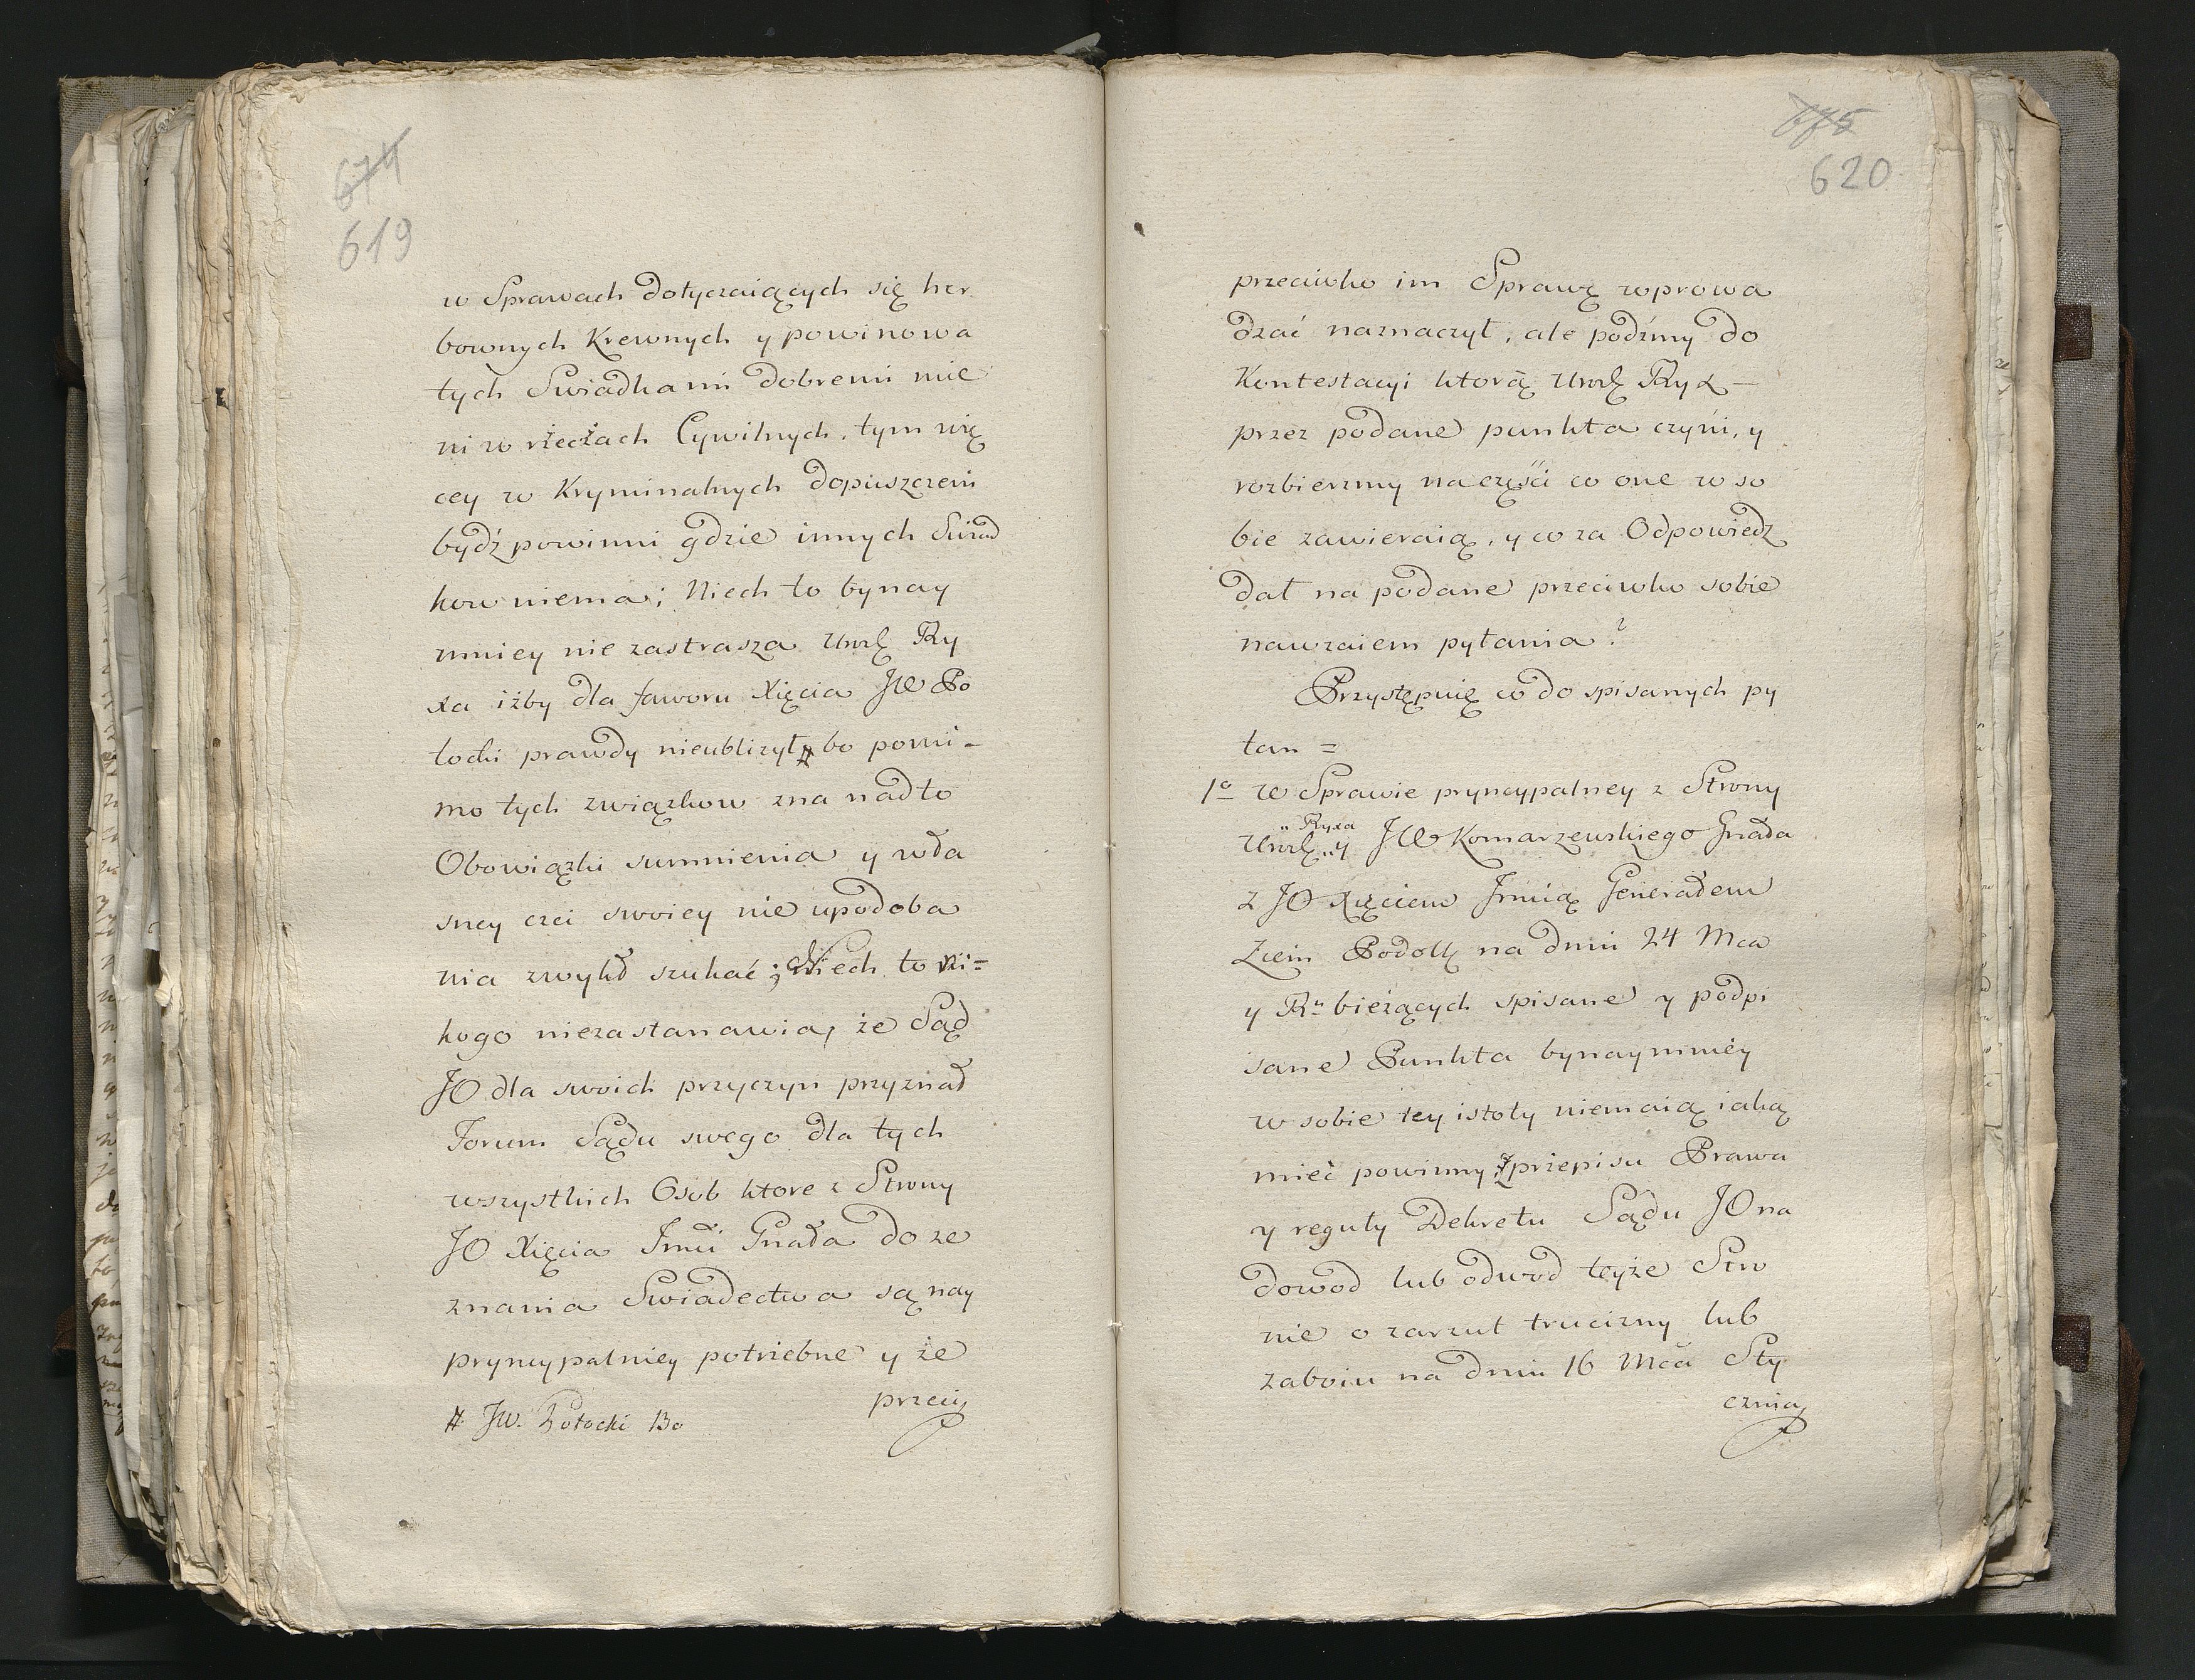 674
619
w Sprawach dotyczaiących się her
bownych Krewnych y powinowa
tych Swiadkami dobremi nie
ni w rzeczach Cywilnych, tym wię
cey w Kryminalnych dopuszczeni
bydź powinni gdzie innych Swiad
kow niema; Niech to bynay
mniey nie zastrasza Urodz Ry
xa iżby dla faworu Xięcia JW Po
tocki prawdy nieubliżył # bo pomi-
mo tych związkow zna nadto
Obowiązki sumnienia y wła
sney czci swoiey nie upodoba
nia zwykł szukać; Niech to ni=
kogo niezastanawia, że Sąd
JO dla swoich przyczyn przyznał
Forum Sądu swego dla tych
wszystkich Osob ktore z Strony
JO Xięcia Jmci Gnała do ze
znania Swiadectwa są nay
pryncypalniey potrzebne y że
przeciw
# JW. Potocki Bo
675
620
przeciwko im Sprawę wprowa
dzać naznaczył, ale podźmy do
Kontestacyi ktorą Urodz Ryx —
przez podane punkta czyni, y
rozbierzmy na części co one w so
bie zawieraią, y co za Odpowiedz
dał na podane przeciwko sobie
nawzaiem pytania?
Przystępuię co do spisanych py
tan =
1o W Sprawie pryncypalney z Strony
" Ryxa
Urodz „ y JW Komarzewskiego Gnała
z JO Xięciem Jmcią Generałem
Ziem Podoll na dniu 24 Mca
y Ru bieżących spisane y podpi
sane Punkta bynaymniey
w sobie tey istoty niemaią iaką
mieć powinny z przepisu Prawa
y reguły Dekretu Sądu JO na
dowod lub odwod teyże Stro
nie o zarzut trucizny lub
zaboiu na dniu 16 Mca Sty
cznia